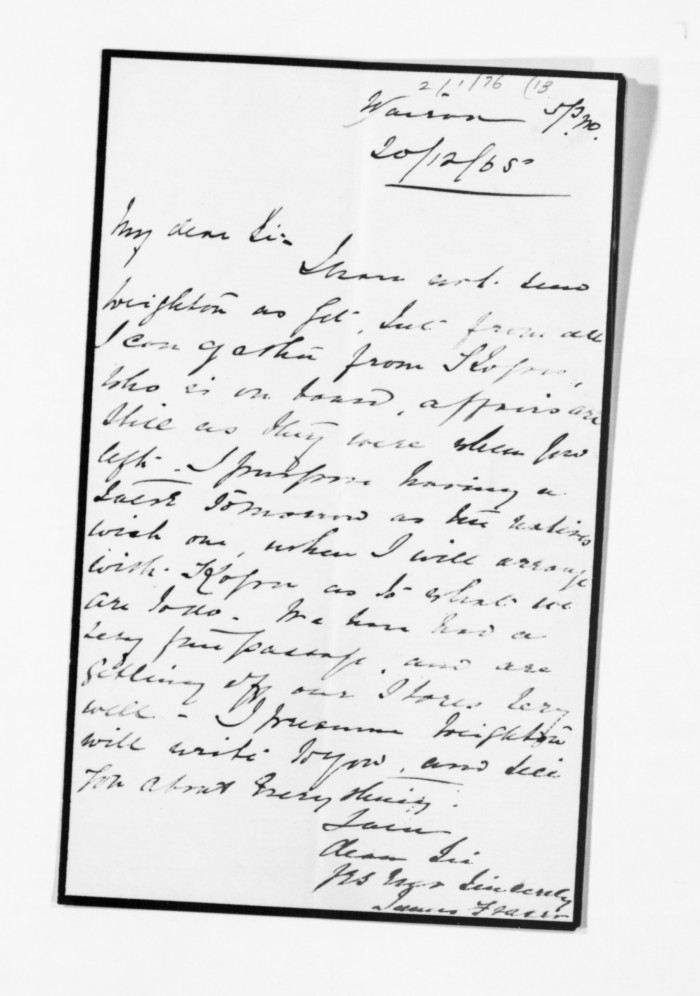 2/1/76 (13
Wairoa 5 P.M.
20/12/65
My dear Sir
I have not seen
Deighton as yet, but from all
I can gather from Kopu,
who is on board, affairs are
still as they were when you
left. I purpose having a
Talk tomorrow as the natives
wish one, when I will arrange
with Kopu as to what we
are to do. We have had a
very fine passage, and are
getting off our Stores very
well - I presume Deighton
will write to you, and tell
you about everything.
I am
dear Sir
Yrs Very Sincerely
James Fraser